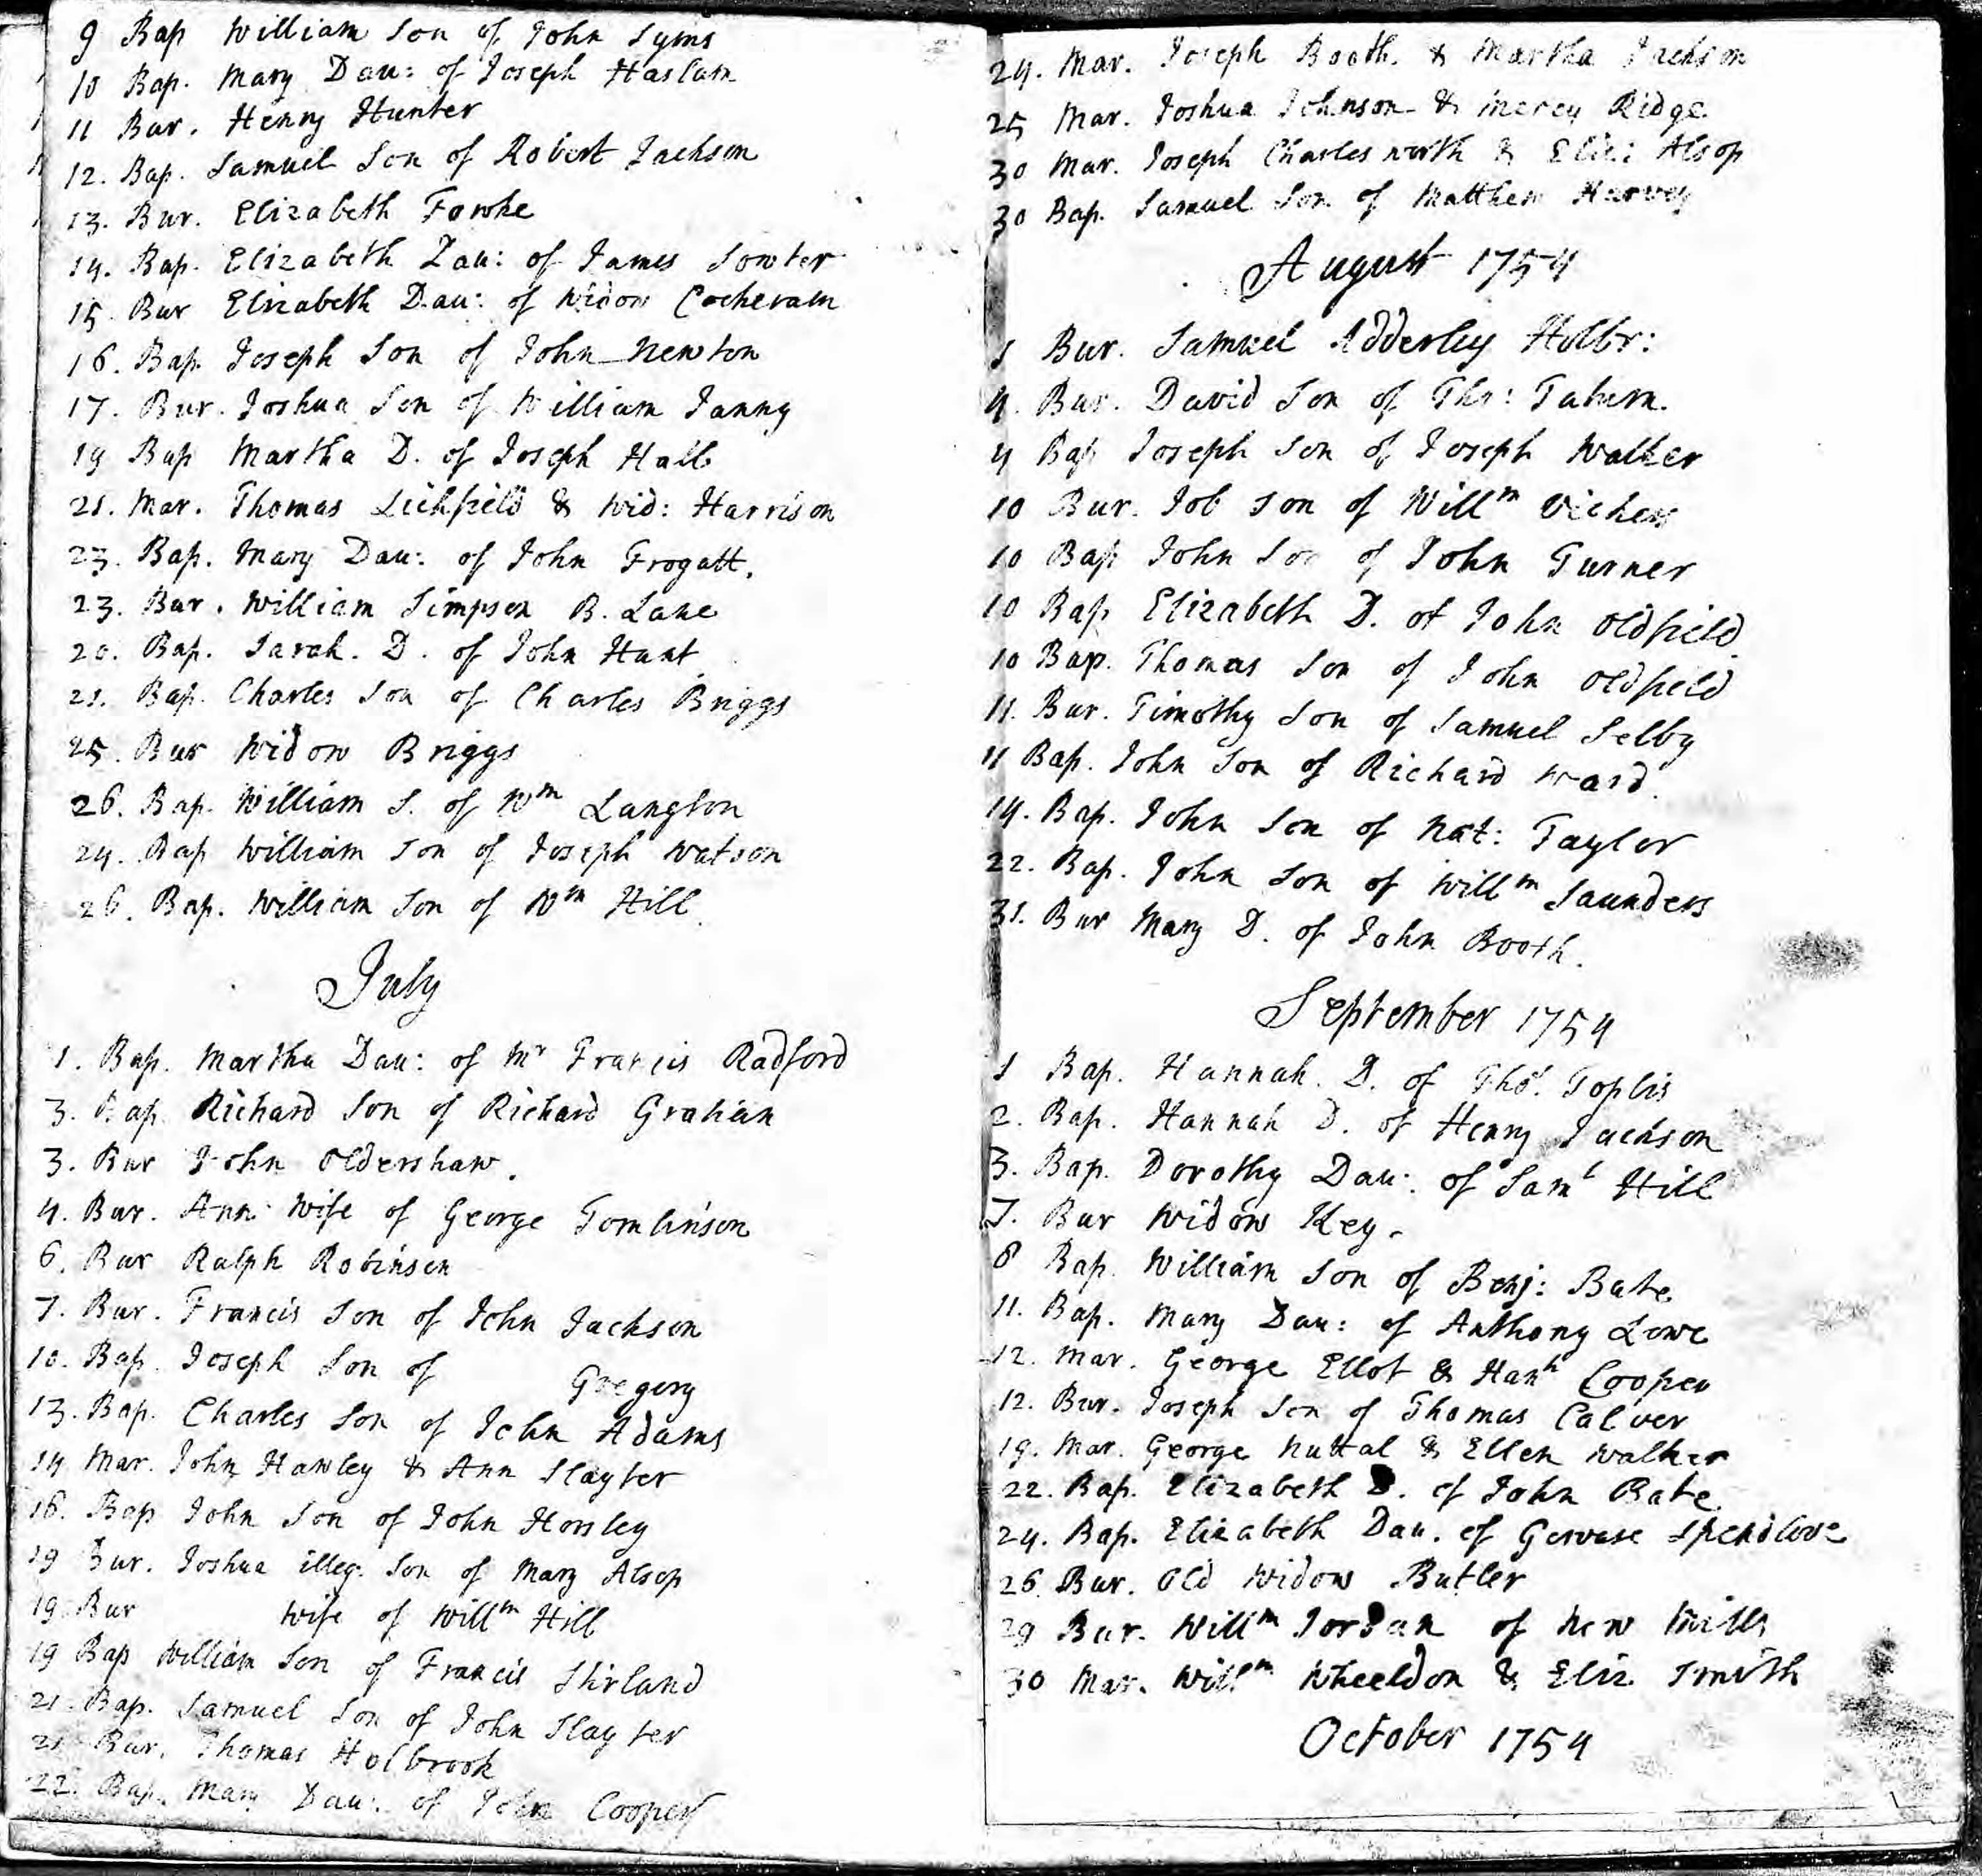 9 Bap William Son of John Syms
10 Bap. Mary Dau: of Joseph Haslam
11 Bur. Henry Hunter
12. Bap. Samuel Son of Robert Jackson
13. Bur. Elizabeth Fowke
14. Bap. Elizabeth Dau: of James Sowter
15. Bur Elizabeth Dau: of Widow Cockeram
16. Bap. Joseph Son of John Newton
17. Bur. Joshua Son of William Janny
19 Bap Martha D. of Joseph Hall
21. Mar. Thomas Lichfield & Wid: Harrison
23. Bap. Mary Dau: of John Frogatt.
23. Bur. William Simpson B. Lane
20. Bap. Sarah. D. of John Hunt
21. Bap. Charles Son of Charles Briggs
25. Bur Widow Briggs
26. Bap. William S. of Wm Langton
24. Bap William Son of Joseph Watson
26. Bap. William Son of Wm Hill.
July
1. Bap. Martha Dau: of Mr Francis Radford
3. Bap. Richard Son of Richard Gratian
3. Bur John Oldershaw.
4. Bur. Ann Wife of George Tomlinson
6. Bur Ralph Robinson
7. Bur. Francis Son of John Jackson
10. Bap. Joseph Son of Gregory
13. Bap. Charles Son of John Adams
14 Mar. John Hawley & Ann Slayter
16. Bap John Son of John Horsley
19 Bur. Joshua illeg. Son of Mary Alsop
19. Bur Wife of Willm Hill
19 Bap William Son of Francis Shirland
21. Bap. Samuel Son of John Slayter
21. Bur. Thomas Holbrook
22. Bap. Mary Dau: of John Cooper
24. Mar. Joseph Booth & Martha Jackson
25 Mar. Joshua Johnson & Mercy Ridge
30 Mar. Joseph Charlesworth & Eliz: Alsop
30 Bap. Samuel Son of Matthew Harvey
August 1754
1 Bur. Samuel Adderley Holbr:
4. Bur. David Son of Tho: Tatum.
4 Bap Joseph Son of Joseph Walker
10 Bur. Job Son of Willm Vickers
10 Bap John Son of John Turner
10 Bap Elizabeth D. of John Oldfield
10 Bap. Thomas Son of John Oldfield
11. Bur. Timothy Son of Samuel Selby
11 Bap. John Son of Richard Ward.
14. Bap. John Son of Nat: Taylor
22. Bap. John Son of Willm Saunders
31. Bur Mary D. of John Booth.
September 1754
1 Bap. Hannah. D. of Thos. Toplis
2. Bap. Hannah D. of Henry Jackson
3. Bap. Dorothy Dau: of Saml Hill
7. Bur Widow Key.
8 Bap. William Son of Benj: Bate
11. Bap. Mary Dau: of Anthony Lowe
12. Mar. George Ellot & Hanh Cooper
12. Bur. Joseph Son of Thomas Calver
19. Mar. George Nuttal & Ellen Walker
22. Bap. Elizabeth D. of John Bate
24. Bap. Elizabeth Dau. of Gervase Spendlove
26 Bur. Old Widow Butler
29 Bur. Willm Jordan of New Mills
30 Mar. Willm Wheeldon & Eliz. Smith
October 1754